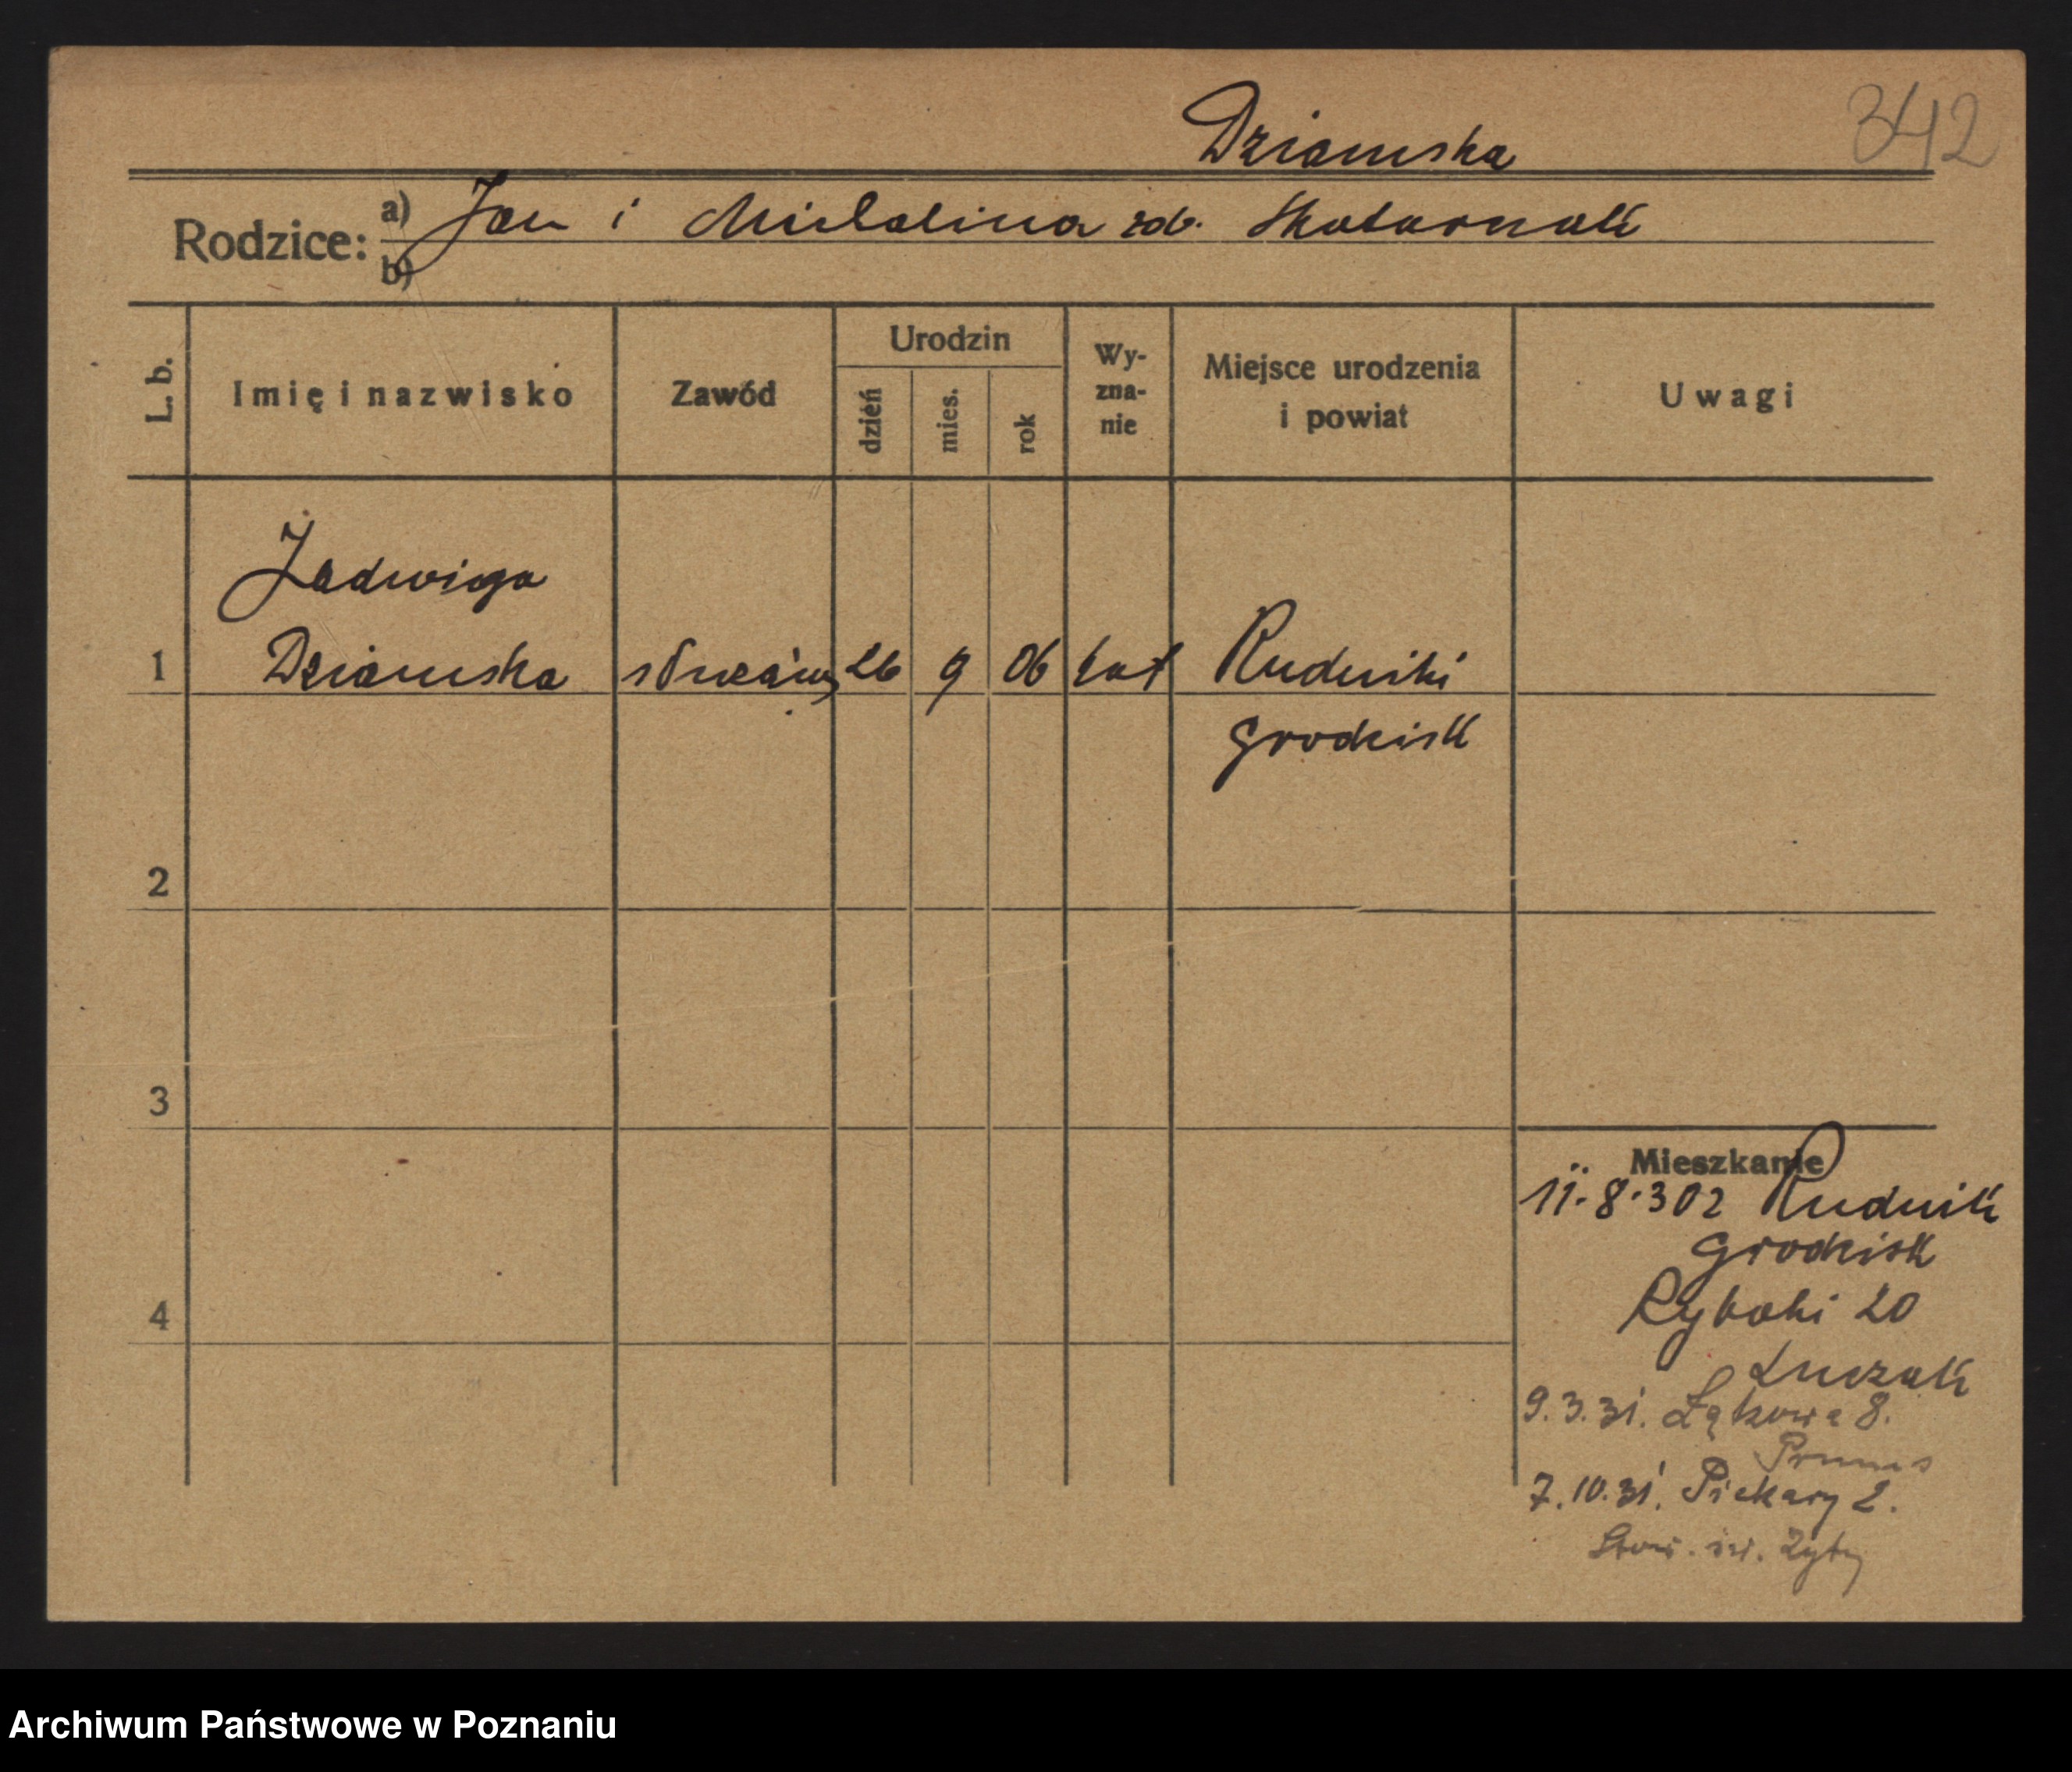 Dziamska
342
Rodzice: a) Jan i Michalina zdr. Skotarczak
b)
L. b.
Imię i nazwisko
Zawód
Urodzin
dzień
mies.
rok
Wy-
zna-
nie
Miejsce urodzenia
i powiat
Uwagi
Jadwiga
1 Dziamska służąca 26 9 06 kat Rudniki
Grodzisk
2
3
4
Mieszkanie
11.8.302 Rudnik
Grodzisk
Rybaki 20
Luczak
9.3.31. Łąkowa 8.
7.10.31. Piekary 2.
Stow. św. Zyty
Archiwum Państwowe w Poznaniu